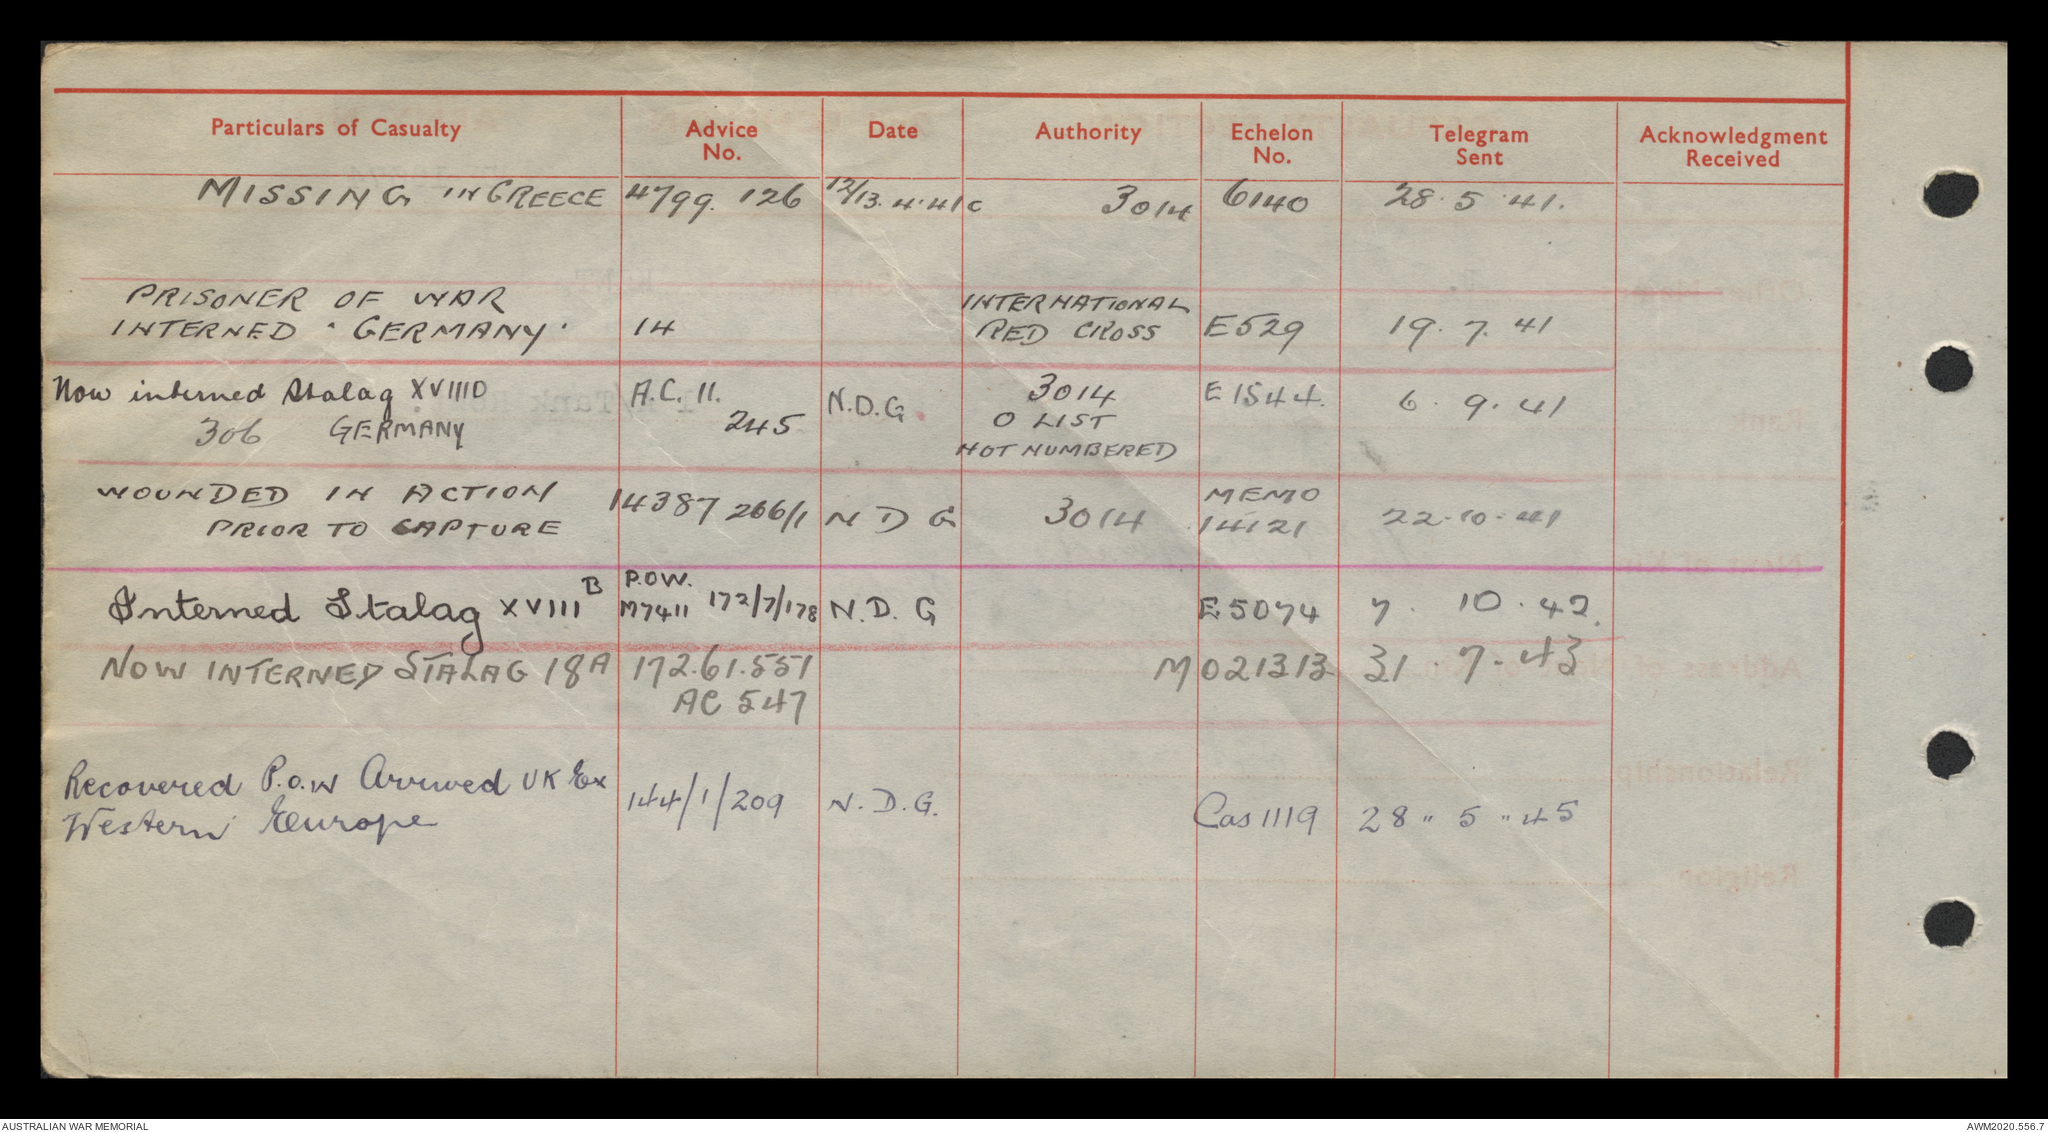 Particulars of Casualty Advice No. Date Authority Echelon No. Telegram Sent Acknowledgment Received
MISSING IN GREECE 4799. 126 12/13.4.41 c 3014 6140 28.5.41.
PRISONER OF WAR INTERNATIONAL
INTERNED "GERMANY" 14 RED CROSS E529 19.7.41
Now interned Stalag XVIIID A.C. 11. N.D.G. 3014 E1544. 6.9.41
306 GERMANY 245 O LIST
NOT NUMBERED
WOUNDED IN ACTION 14387 266/1 N D G 3014 MEMO
PRIOR TO CAPTURE 14121 22-10-41
Interned Stalag XVIII B P.O.W. M7411 172/7/178 N.D.G E5074 7.10.42.
NOW INTERNED STALAG 18A 172.61.551 M021313 31.7.43
AC 547
Recovered P.o.W Arrived UK Ex
Western Europe 144/1/209 N.D.G. Cas 1119 28"5"45
AUSTRALIAN WAR MEMORIAL AWM2020.556.7